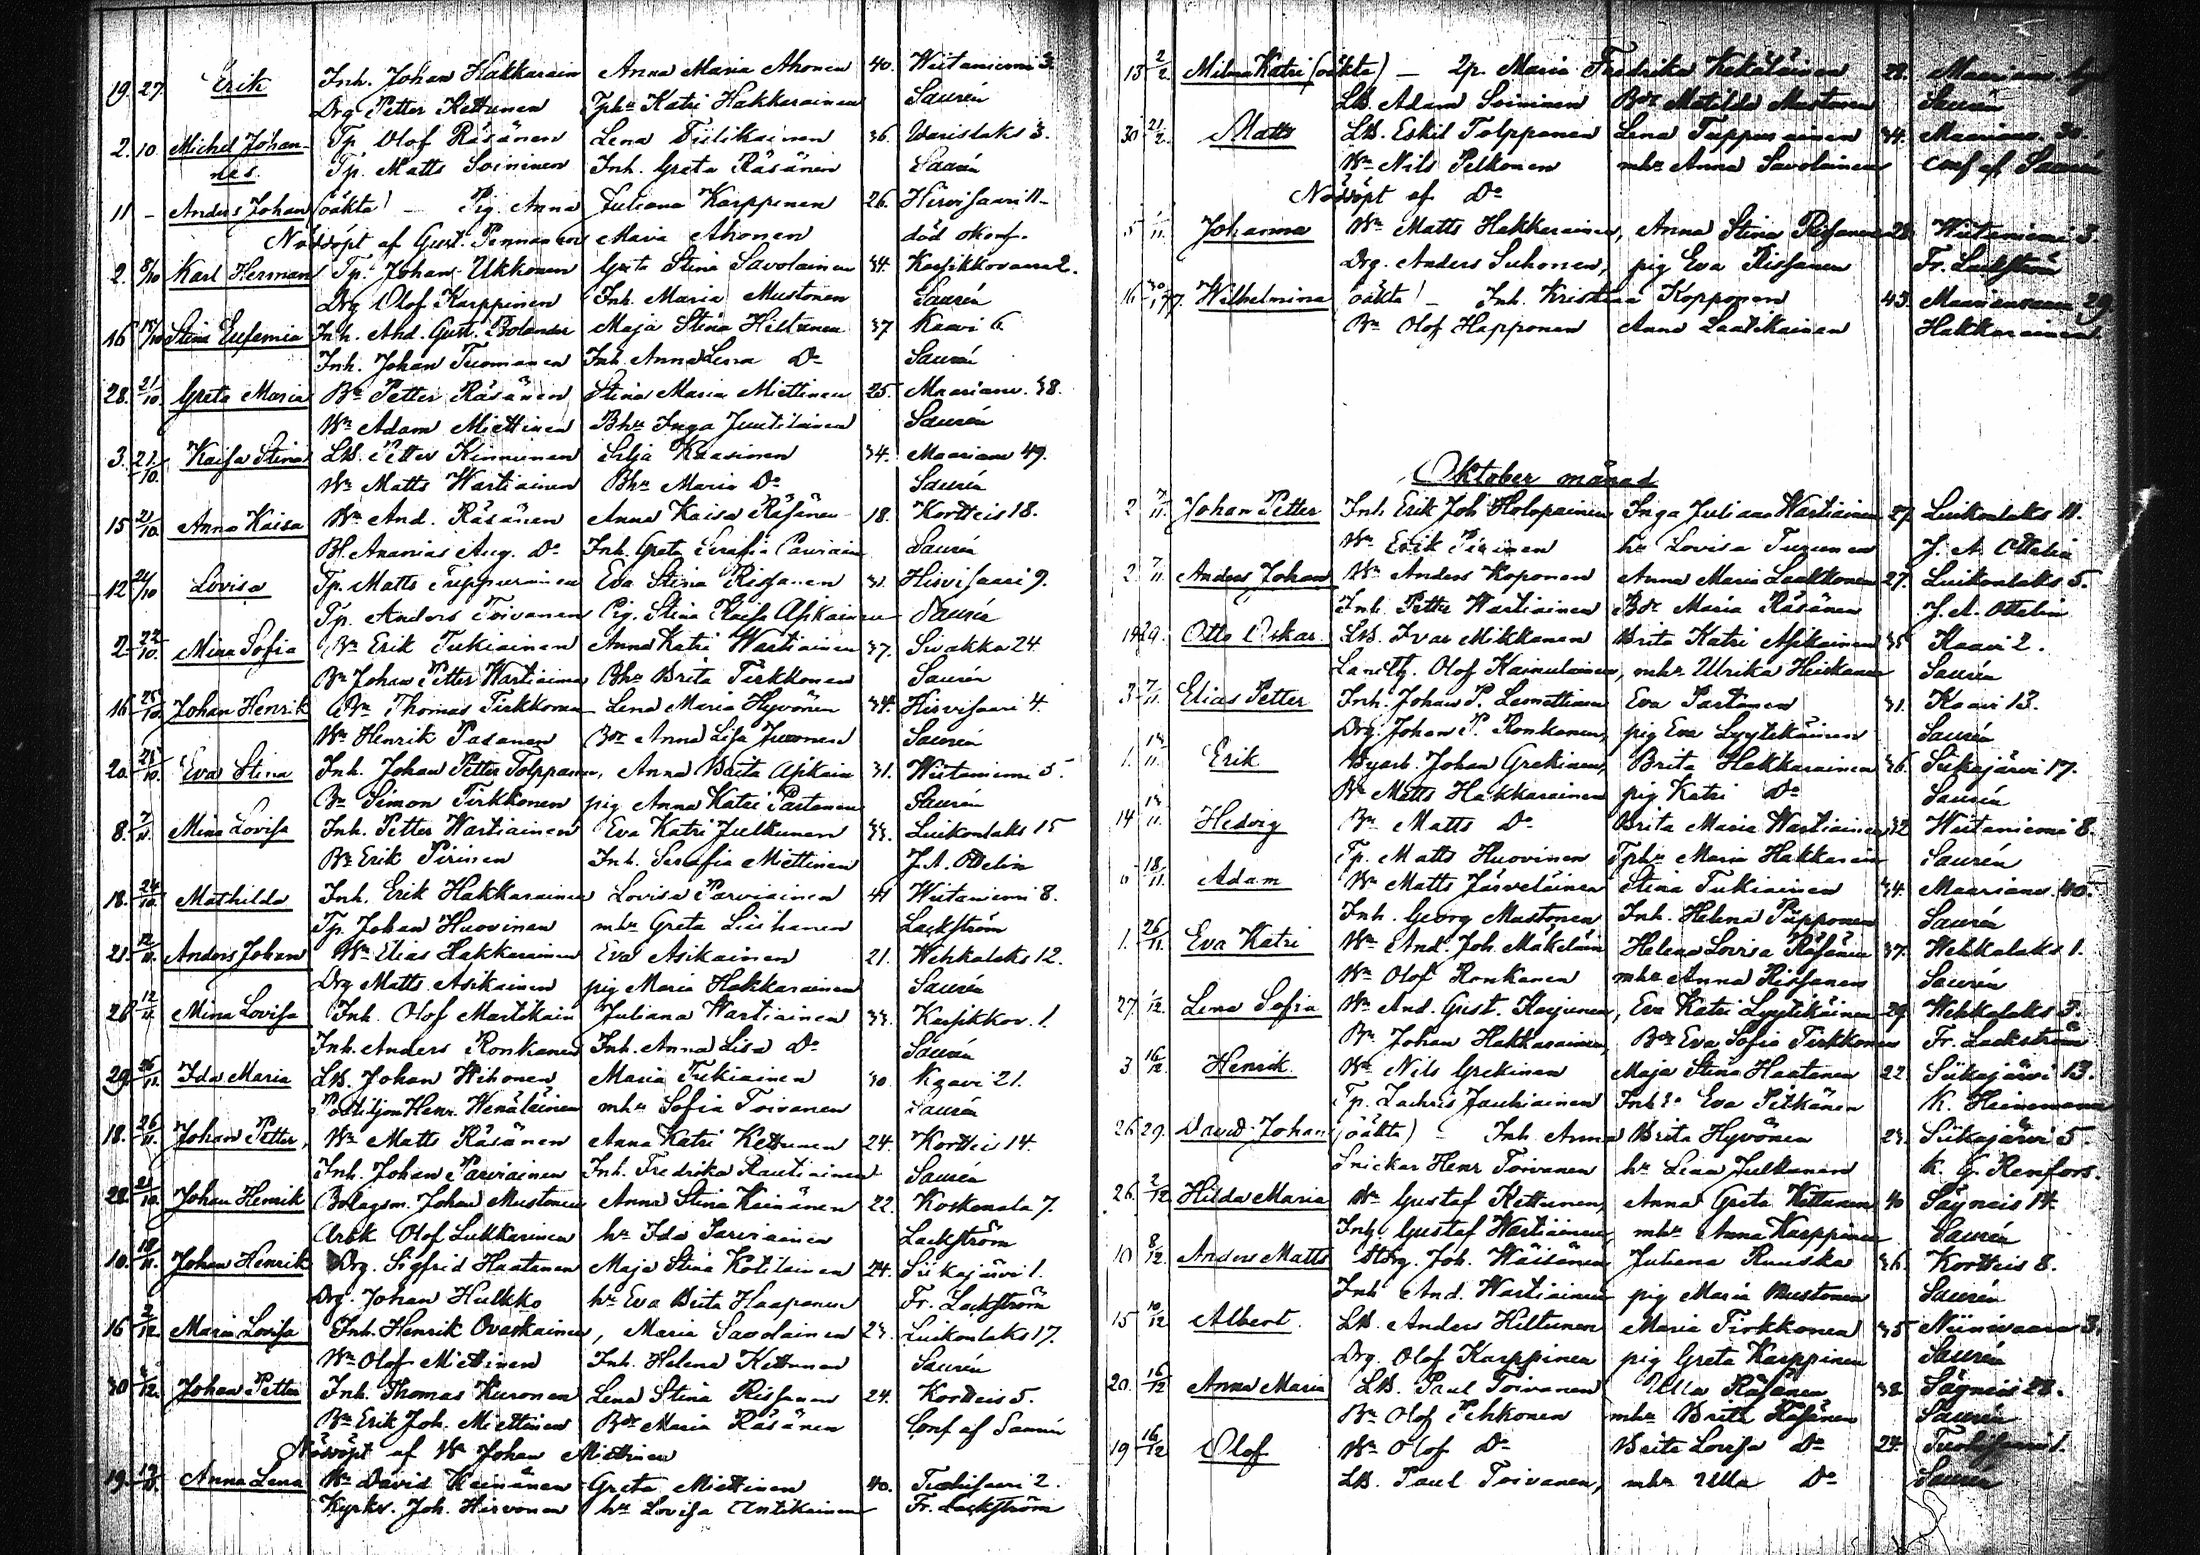 19. 27 Erik Inh. Johan Hakkarain Anna Maria Ahonen 40. Wiitaniemi 3.
Drg Petter Kettunen Tphr Katri Hakkarainen Saurén
2. 10 Michel Johan- Tp Olof Räsänen Lena Tiilikainen 36. Waristaks 3.
nes. Tp. Matts Soininen Inh. Greta Räsänen Saurén
11 – Anders Johan (oäkta) – Pig. Anna Juliana Karppinen 26. Hirvisaari 11
Nöddöpt af Gust. Pennanen Maria Ahonen död okonf.
2. 8/10 Karl Herman Tp. Johan Ukkonen Greta Stina Savolainen 34. Kasikkovaara 2.
Drg Olof Karppinen Inh. Maria Mustonen Saurén
16 15/10 Stina Eufemia Inh. And. Gust. Bolander Maja Stina Hiltunen 37 Kaavi 6
Inh. Johan Tuomanen Inh. Anna Lena Do Saurén
28. 21/10. Greta Maria Bn Petter Räsänen Stina Maria Miettinen 25. Maarianv. 38.
Wn Adam Miettinen Bhr Inga Juutilainen Saurén
3. 21/10. Kaisa Stina LB. Petter Kinnunen Silja Kaasinen 34. Maarianv 49.
Wn Matts Wartiainen Bhr Maria Do Saurén
15 21/10. Anna Kaisa Wn And. Räsänen Anna Kaisa Räsänen 18. Kortteis 18.
Bl. Ananias Aug. Do Inh. Greta Serafia Parviain Saurén
12 24/10 Lovisa Tp. Matts Tuppurainen Eva Stina Rissanen 31. Hirvisaari 9.
Tp. Anders Toivanen Pig. Stina Kaisa Asikainen Saurén
2 24/10. Mina Sofia Bn Erik Tukiainen Anna Katri Wartiainen 37. Sivakka 24
Bn Johan Petter Wartiainen Bhr Brita Tirkkonen Saurén
16 25/10 Johan Henrik Bn Thomas Tirkkonen Lena Maria Hyvönen 34. Hirvisaari 4
Wn Henrik Pasanen Bdr Anna Lisa Juvonen Saurén
20. 28/10. Eva Stina Inh. Johan Petter Tolppanen, Anna Brita Asikain 31. Wiitaniemi 5.
Bn Simon Tirkkonen pig Anna Katri Partanen Saurén
8. 7/11. Mina Lovisa Inh. Petter Wartiainen Eva Katri Julkunen 33. Luikonlaks 15
Bn Erik Pirinen Inh. Serafia Miettinen J. A. Ottelin
18. 24/10. Mathilda Inh. Erik Hakkarainen Lovisa Parviainen 41 Wiitaniemi 8.
Tp. Johan Huovinen mhr Greta Liithanen Lackström
21. 12/11. Anders Johan Wn Elias Hakkarainen Eva Asikainen 21. Wehkalaks 12.
Drg Matts Asikainen pig Maria Hakkarainen Saurén
26 12/11. Mina Lovisa Inh. Olof Martikain Juliana Wartiainen 33. Kasikkov. 1.
Inh. Anders Ronkanen Inh. Anna Lisa Do Saurén
29. 26/11. Ida Maria LB. Johan Hihonen Maria Tukiainen 30. Kaavi 21.
Postiljon Henr. Wenäläinen mhr Sofia Toivanen Saurén
18. 26/11. Johan Petter, Wn Matts Räsänen Anna Katri Kettunen 24. Kortteis 14.
Inh. Johan Parviainen Inh. Fredrika Rautiainen Saurén
28. 21/10. Johan Henrik Bolagsm. Johan Mustonen Anna Stina Kainänen 22. Koskenala 7.
Arbk Olof Lukkarinen hr Ida Parviainen Lackström
10. 19/11. Johan Henrik Drg. Sigfrid Haatanen Maja Stina Kotilainen 24. Siikajärvi 1.
Drg. Johan Hulkko hr Eva Brita Haaponen Fr. Lackström
16 2/12. Maria Lovisa Inh. Henrik Ovaskainen, Maria Savolainen 23. Luikonlaks 17.
Wn Olof Miettinen Inh. Helena Kettunen Saurén
30 2/12. Johan Petter Inh. Thomas Kuronen Lena Stina Rissanen 24. Kortteis 5.
Bn Erik Joh. Miettinen Bdr Maria Räsänen Conf af Saurén
Nöddöpt af Wn Johan Miettinen
19. Anna Lena Wn David Keinänen Greta Miettinen 40. Tuohisaari 2.
Kyrkv. Joh. Hirvonen hr Lovisa Antikainen Fr. Lackström
15 2/2. Milma Katri (oäkta) – Ip. Maria Fredrika Kekäläinen 28. Maarianv.
LB. Adam Soininen Bdr Matilda Mustonen Saurén
30 21/2. Matts LB. Eskil Tolppanen Lena Tuppurainen 34. Maarianv. 30.
Wn Nils Pelkonen mhr Anna Savolainen Conf af Saurén
Nöddöpt af Do
5 1/11. Johanna Wn Matts Hakkarainen, Anna Stina Rissanen 28. Wiitaniemi 3
Drg. Anders Suhonen, pig Eva Rissanen Fr. Lackström
16 30/1 77. Wilhelmina (oäkta) – Inh. Kristina Kopponen 43. Maarianvaara 29
Bn Olof Happonen Anna Laatikainen Hakkarainen.
Oktober månad
2 7/11. Johan Petter Inh. Erik Joh Holopainen Inga Juliana Wartiainen 27. Luikonlaks 11.
Wn Erik Pirinen hr Lovisa Turunen J. A. Ottelin
2. 7/11. Anders Johan Wn Anders Koponen Anna Maria Laakkonen 27. Luikonlaks 5.
Inh. Petter Wartiainen Bdr Maria Räsänen J. A. Ottelin
19 29. Otto Oskar. LB. Ivar Mikkanen Brita Katri Asikainen 35 Kaavi 2.
Landtb. Olof Kainulainen, mhr Ulrika Heiskanen Saurén
3 7/11. Elias Petter Inh. Johan P. Lemettinen Eva Partanen 31. Kaavi 13.
Drg. Johan P. Ronkanen, pig Eva Lyytikäinen Saurén
1. 14/11. Erik Byarb. Johan Grekinen, Brita Hakkarainen 36. Siikajärvi 17.
Bn Matts Hakkarainen pig Katri Do Saurén
14 14/11. Hedvig Bn Matts Do Brita Maria Wartiainen 32 Wiitaniemi 8.
Tp. Matts Huovinen Tphr Maria Hakkarain Saurén
6 18/11. Adam Wn Matts Jäsveläinen Stina Tukiainen 34. Maarianv. 40.
Inh. Georg Mustonen Inh. Helena Pupponen Saurén
1. 26/11. Eva Katri Wn And. Joh. Mäkeläin Helena Lovisa Räsänen 37. Wehkalaks 1.
Wn Olof Ronkanen mhr Anna Rissanen Saurén
27. 1/12. Lena Sofia Wn And. Gust. Karjunen, Eva Katri Lyytikäinen 29. Wehkalaks 3.
Bn Johan Hakkarainen, Bdr Eva Sofia Tirkkonen Fr. Lackström
3 16/12. Henrik. Wn Nils Grekinen Maja Stina Haatanen 22. Siikajärvi 13.
Tp. Zachris Jauhiainen Inh. Eva Pitkänen K. Heinemann
26 29. David Johan (oäkta) – Inh. Anna Brita Hyvönen 23. Siikajärvi 5.
Snickar Henr Toivanen hr Lena Julkunen K. G. Renfors.
26. 2/12 Hilda Maria Wn Gustaf Kettunen, Anna Greta Kettunen 40 Sägneis 14.
Inh. Gustaf Wartiainen, mhr Anna Karppinen Saurén
10 8/12. Anders Matts Joh. Wäisänen Juliana Ruuska 36. Kortteis 8.
Inh And. Wartiainen pig Maria Mustonen Saurén
15 10/12 Albert. LB. Anders Hiltunen Maria Tirkkonen 35 Niinivaara 3.
Drg. Olof Karppinen pig Greta Karppinen Saurén
20. 16/12 Anna Maria LB. Paul Toivanen Ulla Räsänen 38. Sägneis 28.
Bn Olof Pehkonen mhr Brita Räsänen Saurén
19 16/12 Olof Wn Olof Do Brita Lovisa Do 24. Tuohisaari 1.
LB. Paul Toivanen, mhr Ulla Do Saurén